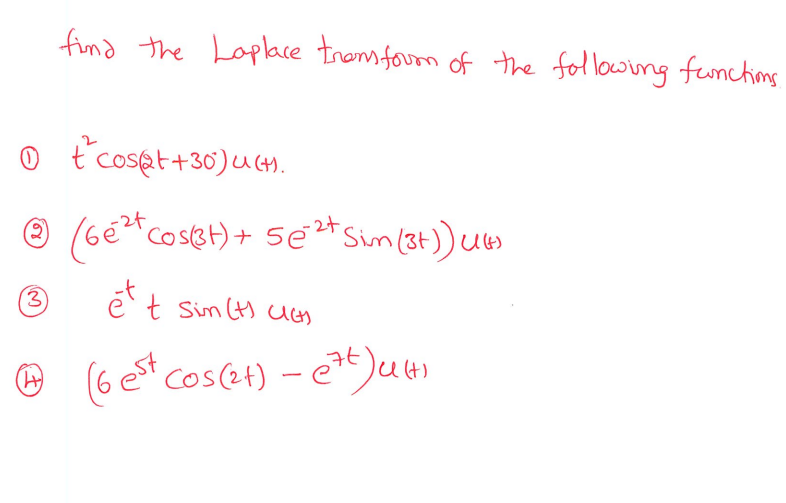 find the Laplace transform of the following functions
① t² cos(2t+30°)u(t).
② (6e⁻²ᵗ cos(3t) + 5e⁻²ᵗ sin(3t))u(t)
③ e⁻ᵗ t sin(t) u(t)
④ (6e⁵ᵗ cos(2t) − e⁷ᵗ)u(t)